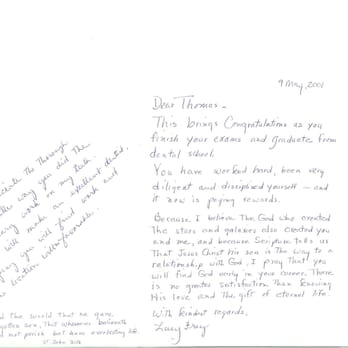 9 May, 2001
Dear Thomas -
This brings Congratulations as you
finish your exams and graduate from
dental school.
You have worked hard, been very
diligent and disciplined yourself - and
it now is paying rewards.
Because I believe the God who created
the stars and galaxies also created you
and me, and because Scripture tells us
that Jesus Christ his son is the way to a
relationship with God, I pray that you
will find God early in your career. There
is no greater satisfaction than knowing
His love and the gift of eternal life.
With kindest regards,
Lucy
the thorough
way you did the
work on my teeth.
will make an excellent dentist.
you will find work and
location
the world that he gave
son, that whosoever believeth
not perish but have everlasting life.
St. John 3:16